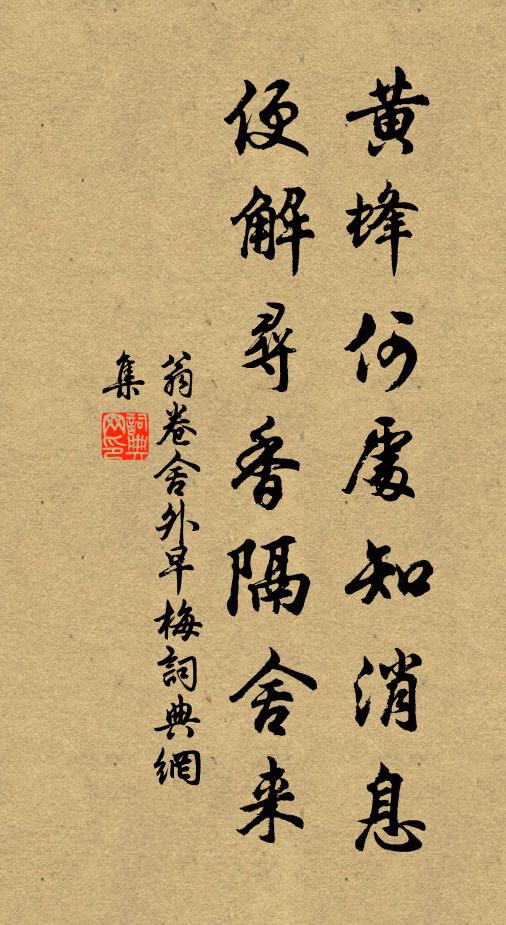 黄蜂何處知消息
便解尋香隔舍来
翁卷舍外早梅詞典網
集
詞典
网印